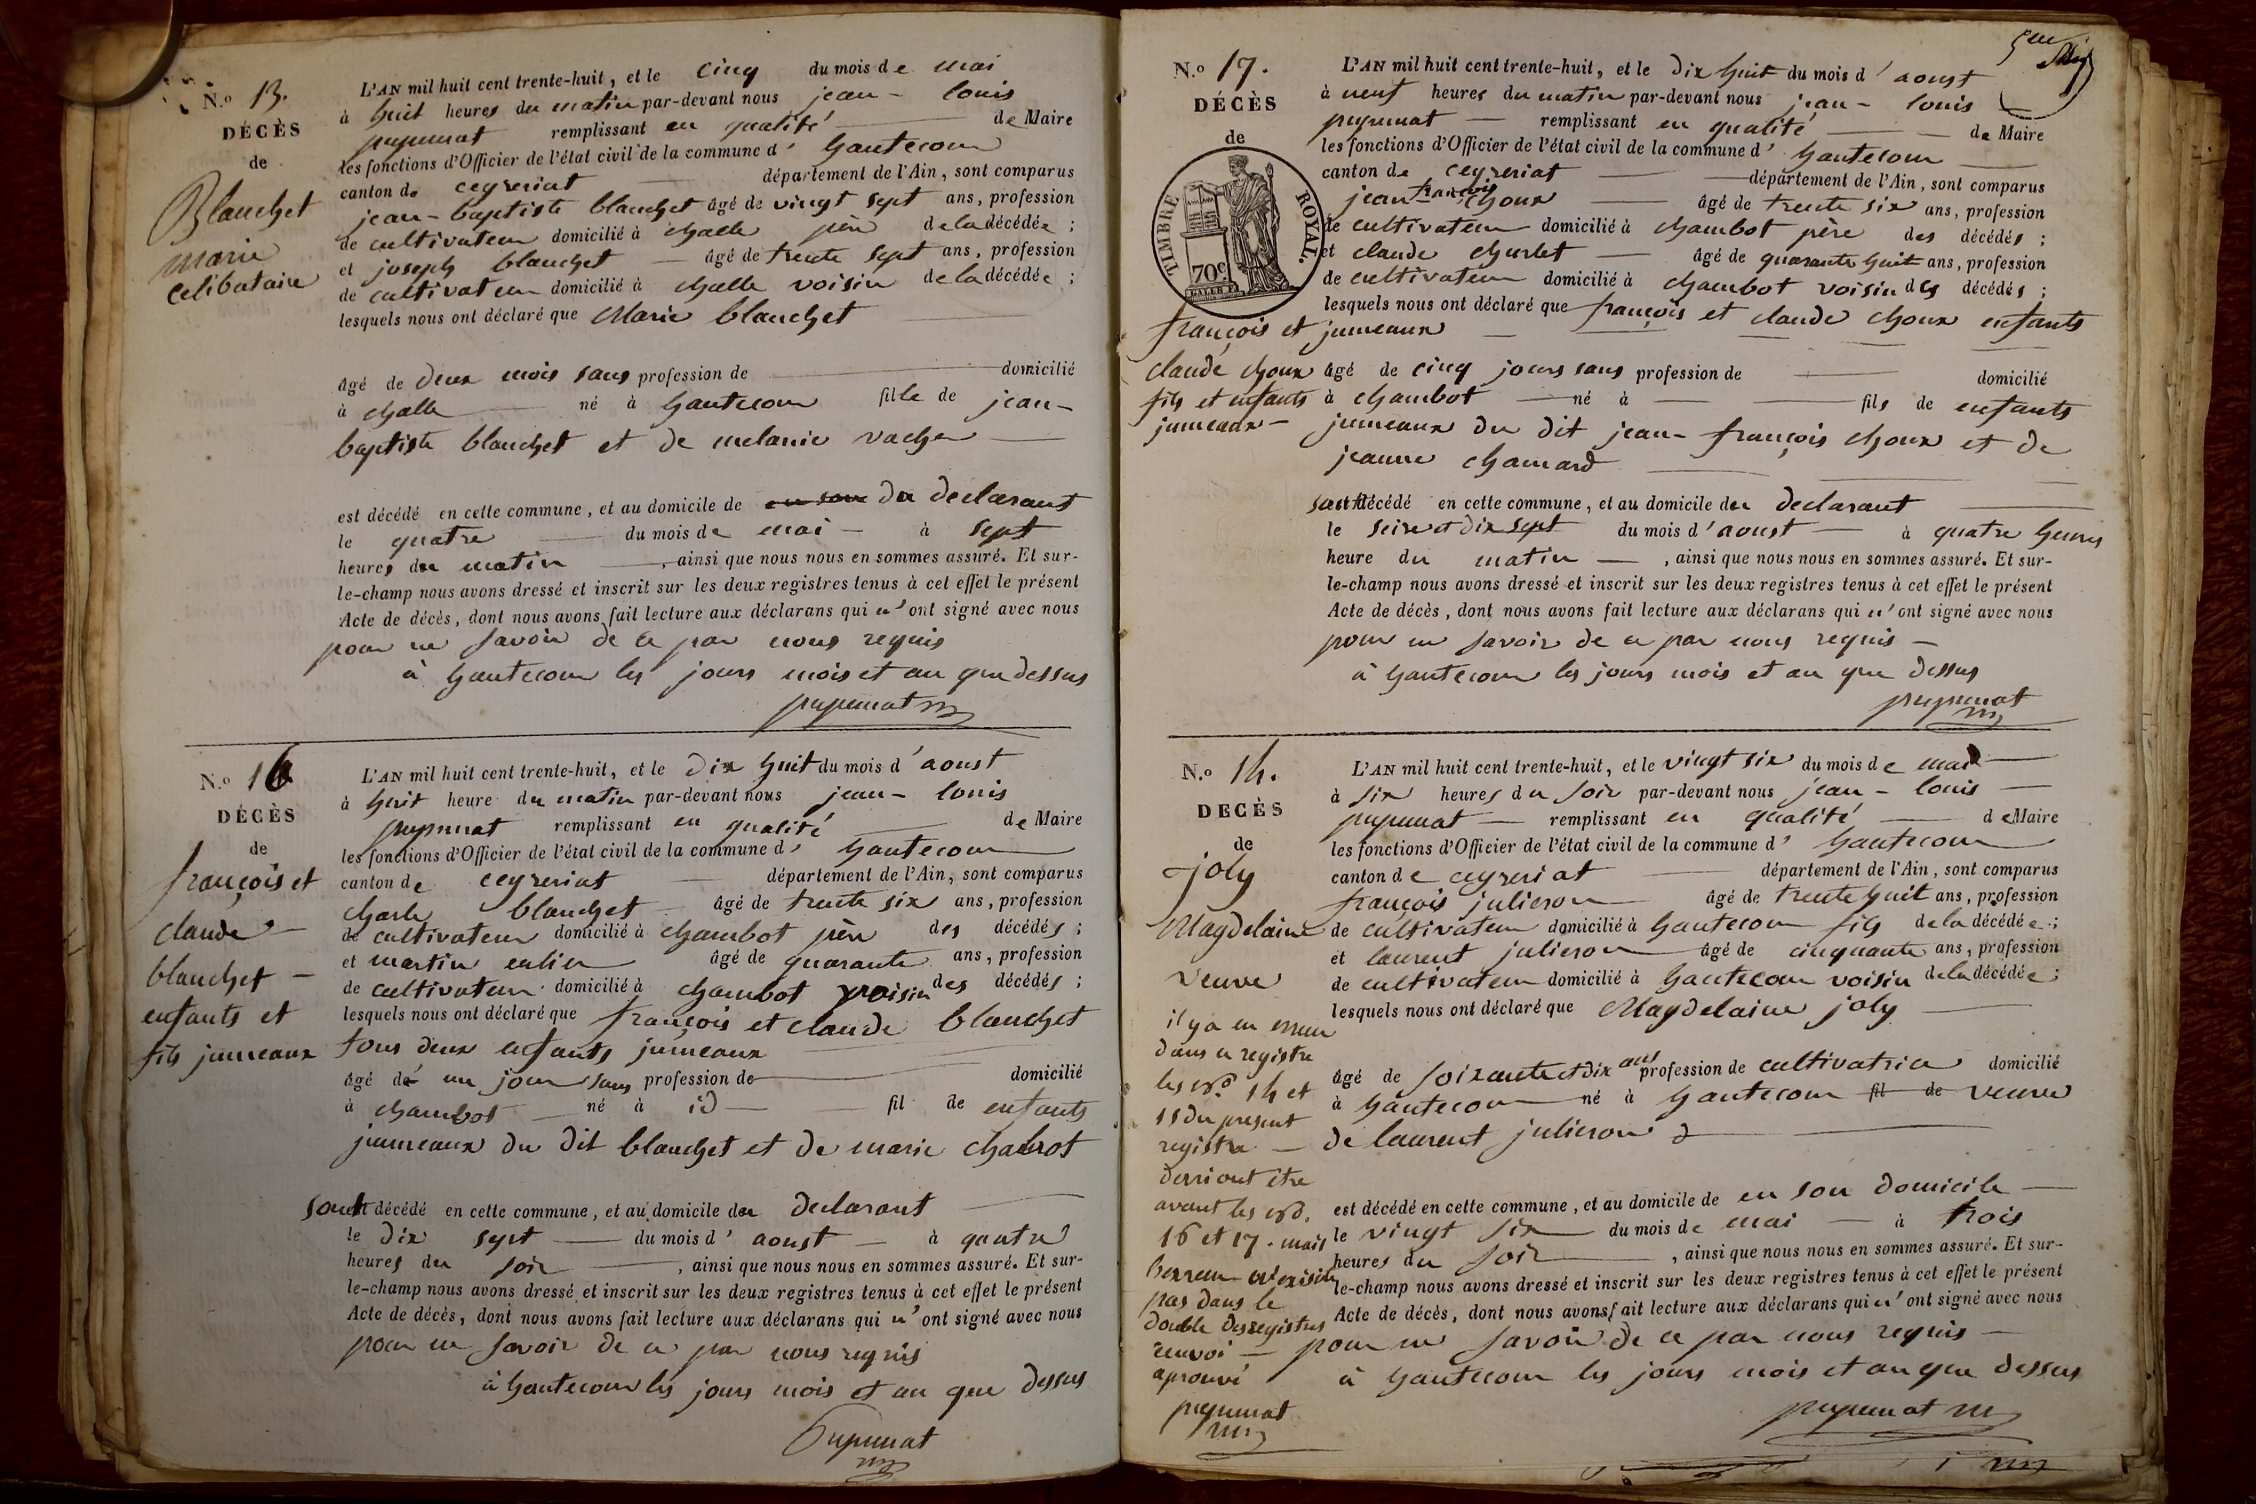 N.o 13.
DÉCÈS
de
Blanchet
marie
celibataire
L'AN mil huit cent trente-huit, et le cinq du mois de mai
à huit heures du matin par-devant nous jean - louis
pupunat remplissant en qualité de Maire
les fonctions d'Officier de l'état civil de la commune d' hautecour
canton de ceyzeriat département de l'Ain, sont comparus
jean-baptiste blanchet âgé de vingt sept ans, profession
de cultivateur domicilié à challe père de la décédée ;
et joseph blanchet âgé de trente sept ans, profession
de cultivateur domicilié à challe voisin de la décédée ;
lesquels nous ont déclaré que Marie blanchet
âgé de deux mois sans profession de domicilié
à challe né à hautecour fille de jean-
baptiste blanchet et de melanie vacher
est décédé en cette commune, et au domicile de en son du declarant
le quatre du mois de mai - à sept
heures du matin , ainsi que nous nous en sommes assuré. Et sur-
le-champ nous avons dressé et inscrit sur les deux registres tenus à cet effet le présent
Acte de décès, dont nous avons fait lecture aux déclarans qui n'ont signé avec nous
pour ne savoir de ce par nous requis
à hautecour les jours mois et an que dessus
pupunat
N.o 16
DÉCÈS
de
françois et
claude -
blanchet -
enfants et
fils jumeaux
L'AN mil huit cent trente-huit, et le dix huit du mois d'aoust
à huit heure du matin par-devant nous jean - louis
pupunat remplissant en qualité de Maire
les fonctions d'Officier de l'état civil de la commune d' hautecour
canton de ceyzeriat département de l'Ain, sont comparus
charle blanchet âgé de trente six ans, profession
de cultivateur domicilié à chambot père des décédés ;
et martin âgé de quarante ans, profession
de cultivateur domicilié à chambot voisin des décédés ;
lesquels nous ont déclaré que françois et claude blanchet
tous deux enfants jumeaux
âgé de un jour sans profession de domicilié
à chambot né à id fil de enfants
jumeaux du dit blanchet et de marie chabrot
sont décédé en cette commune, et au domicile du declarant
le dix sept du mois d'aoust - à quatre
heures du soir , ainsi que nous nous en sommes assuré. Et sur-
le-champ nous avons dressé et inscrit sur les deux registres tenus à cet effet le présent
Acte de décès, dont nous avons fait lecture aux déclarans qui n'ont signé avec nous
pour ne savoir de ce par nous requis
à hautecour les jours mois et an que dessus
Pupunat
5me
N.o 17.
DÉCÈS
de
TIMBRE ROYAL.
70c.
françois et
claude choux
fils et enfants
jumeaux -
L'AN mil huit cent trente-huit, et le dix huit du mois d'aoust
à neuf heures du matin par-devant nous jean - louis
pupunat - remplissant en qualité de Maire
les fonctions d'Officier de l'état civil de la commune d' hautecour
canton de ceyzeriat département de l'Ain, sont comparus
jean françois choux âgé de trente six ans, profession
de cultivateur domicilié à chambot père des décédés ;
et claude âgé de quarante huit ans, profession
de cultivateur domicilié à chambot voisin des décédés ;
lesquels nous ont déclaré que françois et claude choux enfants
jumeaux
âgé de cinq jours sans profession de domicilié
à chambot né à fils de enfants
jumeaux du dit jean-françois choux et de
jeanne chanard
sont décédé en cette commune, et au domicile du declarant
le seize et dix sept du mois d'aoust à quatre heures
heure du matin , ainsi que nous nous en sommes assuré. Et sur-
le-champ nous avons dressé et inscrit sur les deux registres tenus à cet effet le présent
Acte de décès, dont nous avons fait lecture aux déclarans qui n'ont signé avec nous
pour ne savoir de ce par nous requis -
à hautecour les jours mois et an que dessus
pupunat
N.o 14.
DÉCÈS
de
joly
Magdelaine
veuve
il y a eu erreur
dans ce registre
les no. 14 et
15 du present
registre -
devriont être
avant les no.
16 et 17. mais
l'erreur n'existe
pas dans le
double des registres
renvoi -
aprouvé
pupunat
L'AN mil huit cent trente-huit, et le vingt six du mois de mai
à six heures du soir par-devant nous jean - louis
pupunat - remplissant en qualité de Maire
les fonctions d'Officier de l'état civil de la commune d' hautecour
canton de ceyzeriat département de l'Ain, sont comparus
françois julieron âgé de trente huit ans, profession
de cultivateur domicilié à hautecour fils de la décédée ;
et laurent julieron âgé de cinquante ans, profession
de cultivateur domicilié à hautecour voisin de la décédée ;
lesquels nous ont déclaré que Magdelaine joly
âgé de soixante et dix ans profession de cultivatrice domicilié
à hautecour né à hautecour fil de veuve
de laurent julieron
est décédé en cette commune, et au domicile de en son domicile
le vingt six du mois de mai - à trois
heures du soir , ainsi que nous nous en sommes assuré. Et sur-
le-champ nous avons dressé et inscrit sur les deux registres tenus à cet effet le présent
Acte de décès, dont nous avons fait lecture aux déclarans qui n'ont signé avec nous
pour ne savoir de ce par nous requis -
à hautecour les jours mois et an que dessus
pupunat